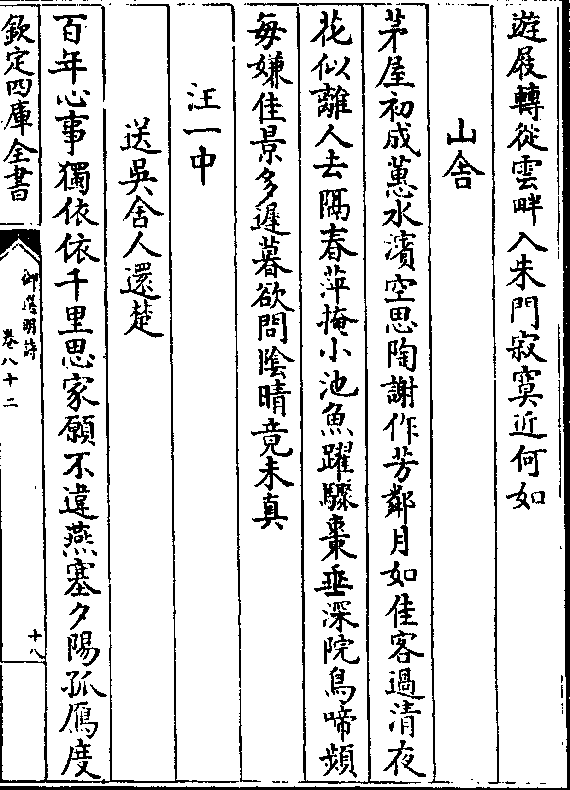 遊屐轉從雲畔入朱門寂寞近何如
山舍
茅屋初成蕙水濱空思陶謝作芳鄰月如佳客過清夜
花似離人去隔春萍掩小池魚躍驟棗垂深院鳥啼頻
每嫌佳景多遲暮欲問陰晴竟未真
汪一中
送吳舍人還楚
百年心事獨依依千里思家願不違燕塞夕陽孤鴈度
欽定四庫全書
御選明詩
卷八十二
十八